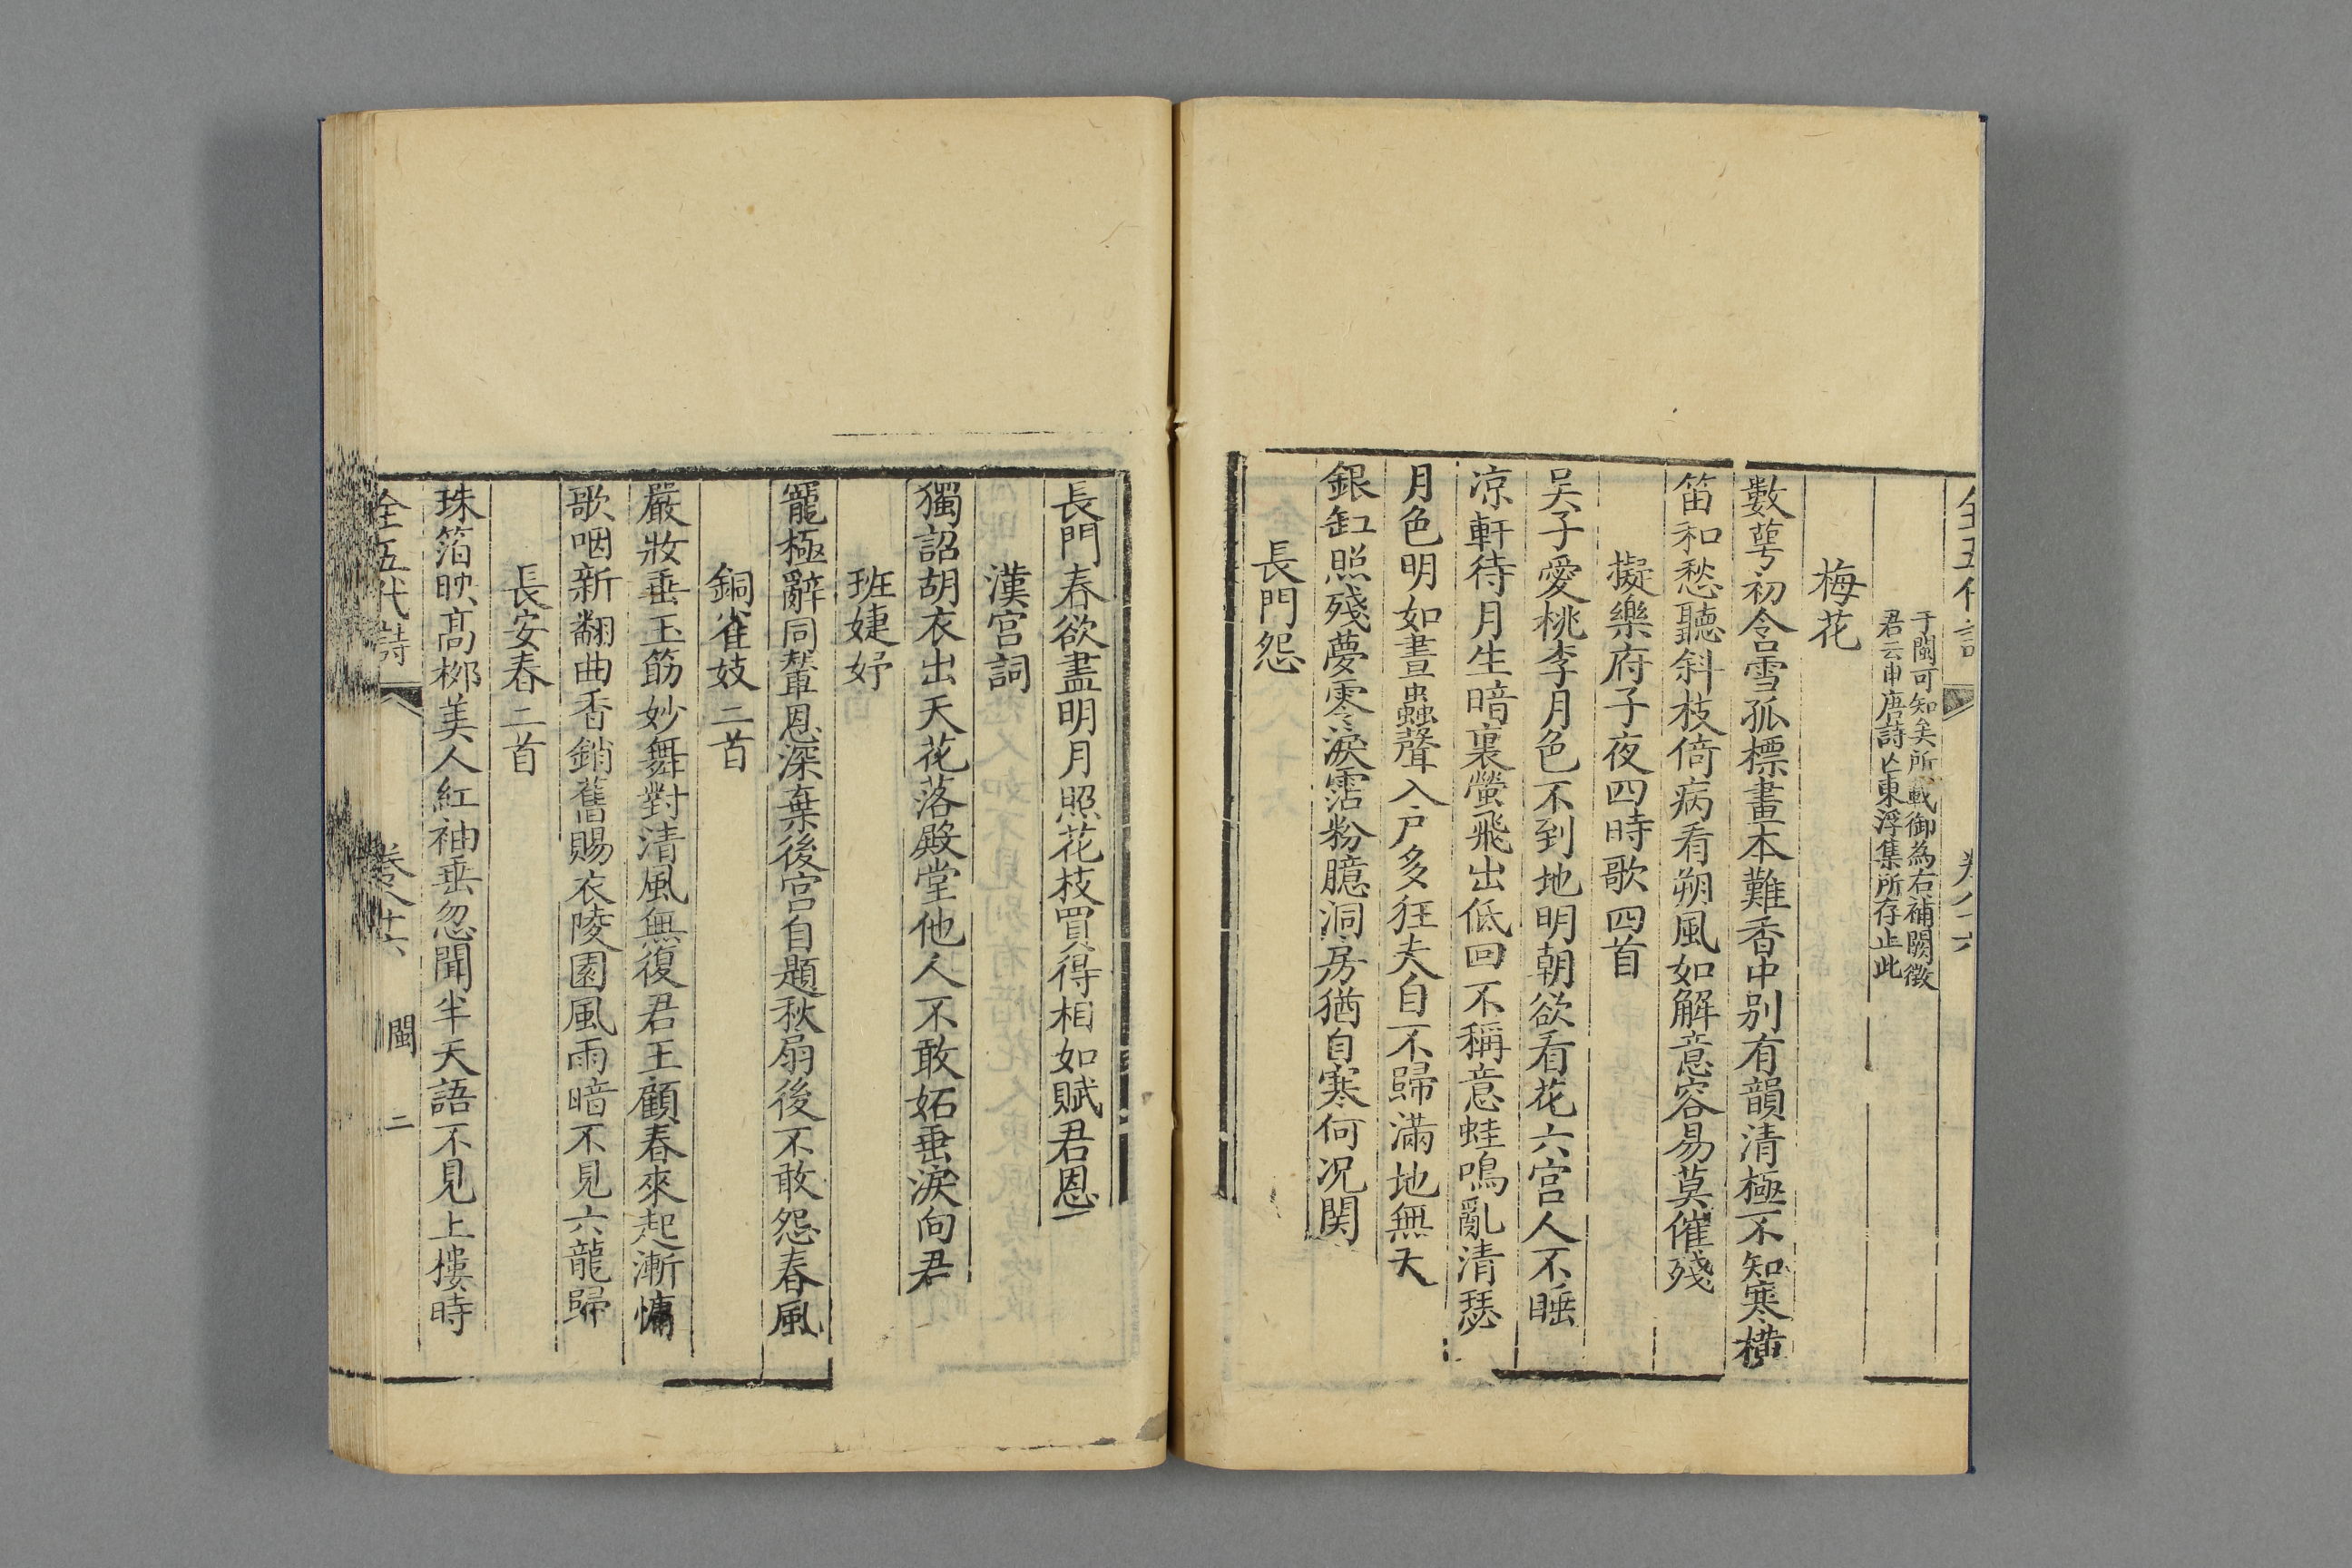 于閩可知矣所載御為右補闕徵
君云申唐詩亡東浮集所存止此
梅花
數萼初含雪孤標畫本難香中别有韻清極不知寒橫
笛和愁聽斜枝倚病看朔風如解意容易莫催殘
擬樂府子夜四時歌四首
吴子愛桃李月色不到地明朝欲看花六宫人不睡
凉軒待月生暗裏螢飛出低回不稱意蛙鳴亂清瑟
月色明如晝蟲聲入户多狂夫自不歸滿地無天
銀缸照殘夢零淚霑粉臆洞房猶自寒何况関
長門怨
長門春欲盡明月照花枝買得相如賦君恩
漢宫詞
獨詔胡衣出天花落殿堂他人不敢妬垂淚向君
班婕妤
寵極辭同輦恩深棄後宫自題秋扇後不敢怨春風
銅雀妓二首
嚴妝垂玉筯妙舞對清風無復君王顧春來起漸慵
歌咽新翻曲香銷舊賜衣陵園風雨暗不見六龍歸
長安春二首
珠箔映高桞美人紅袖垂忽聞半天語不見上樓時
全五代詩 卷八十六 閩 二